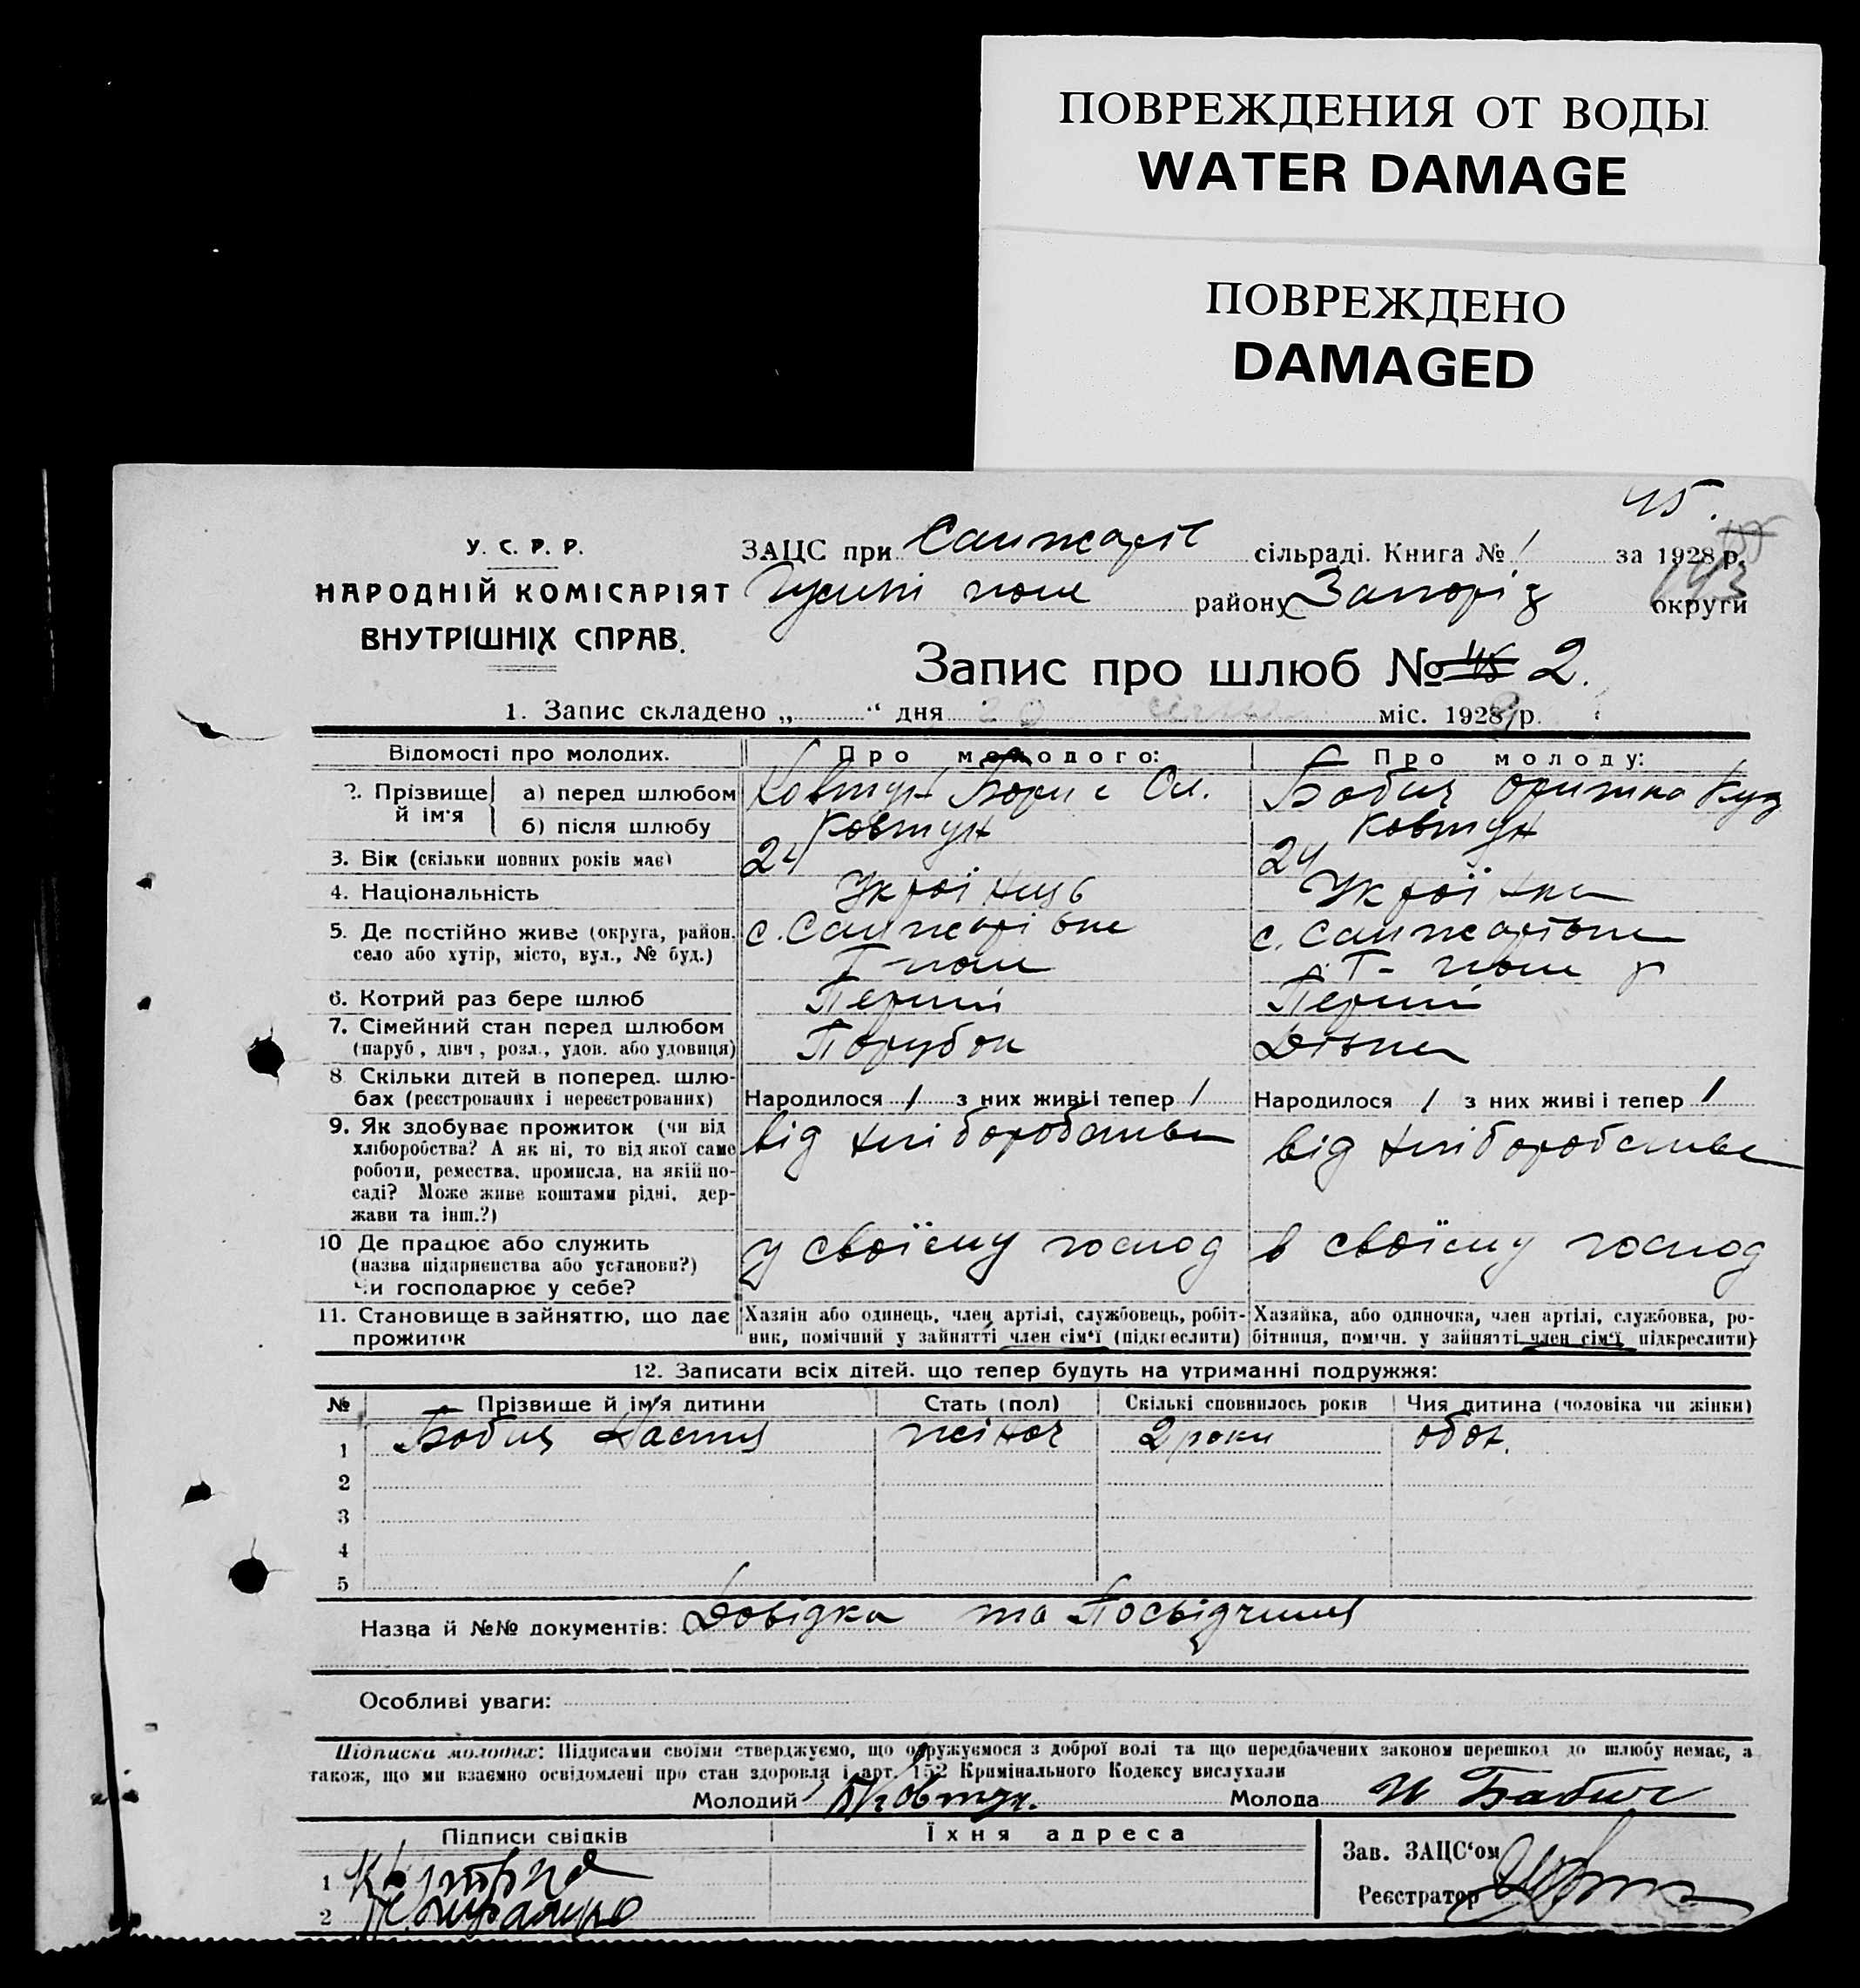 ПОВРЕЖДЕНИЯ ОТ ВОДЫ
WATER DAMAGE
ПОВРЕЖДЕНО
DAMAGED
45.
У. С. Р. Р.
НАРОДНІЙ КОМІСАРІЯТ
ВНУТРІШНІХ СПРАВ.
ЗАЦС при Санжарів сільраді. Книга № 1 за 1928 р.
поле району Запоріз округи
143
Запис про шлюб № 45 2.
1. Запис складено „ “ дня 20 міс. 1928 р.
Відомості про молодих. Про молодого: Про молоду:
2. Прізвище й ім'я а) перед шлюбом Ковтун Борис Ол. Бабич Оришка Куз
б) після шлюбу Ковтун Ковтун
3. Вік (скільки повних років має) 24 24
4. Національність Українць Українка
5. Де постійно живе (округа, район, с. Санжарівка с. Санжарівка
село або хутір, місто, вул., № буд.) Г поле Г- поле р
6. Котрий раз бере шлюб Перший Перший
7. Сімейний стан перед шлюбом Парубок Дівка
(паруб, дівч, розл., удов. або удовиця)
8. Скільки дітей в поперед. шлю-
бах (реєстрованих і нереєстрованих) Народилося / з них живі і тепер / Народилося / з них живі і тепер /
9. Як здобуває прожиток (чи від від хліборобства від хліборобства
хліборобства? А як ні, то від якої саме
роботи, ремества, промисла, на якій по-
саді? Може живе коштами рідні, дер-
жави та інш.?)
10 Де працює або служить у своїєму господ в своїєму господ
(назва підприєнства або установи?)
Чи господарює у себе?
11. Становище в зайняттю, що дає Хазяін або одинець, член артілі, службовець, робіт- Хазяйка, або одиночка, член артілі, службовка, ро-
прожиток ник, помічний у зайнятті член сім'ї (підкреслити) бітниця, помічн. у зайнятті член сім'ї підкреслити)
12. Записати всіх дітей. що тепер будуть на утриманні подружжя:
№ Прізвише й ім'я дитини Стать (пол) Скількі сповнилось років Чия дитина (чоловіка чи жінки)
1 Бабич Настя жіноч 2 роки обох.
2
3
4
5
Назва й №№ документів: Довідка та Посвідчиня
Особливі уваги:
Підписка молодих: Підписами своїми стверджуємо, що одружуємося з доброї волі та що передбачених законом перешкод до шлюбу немає, а
також, що ми взаємно освідомлені про стан здоровля і арт. 152 Кримінального Кодексу вислухали
Молодий Б Ковтун. Молода И Бабич
Підписи свідків Їхня адреса
Зав. ЗАЦС‘ом
1
Реєстратор
2